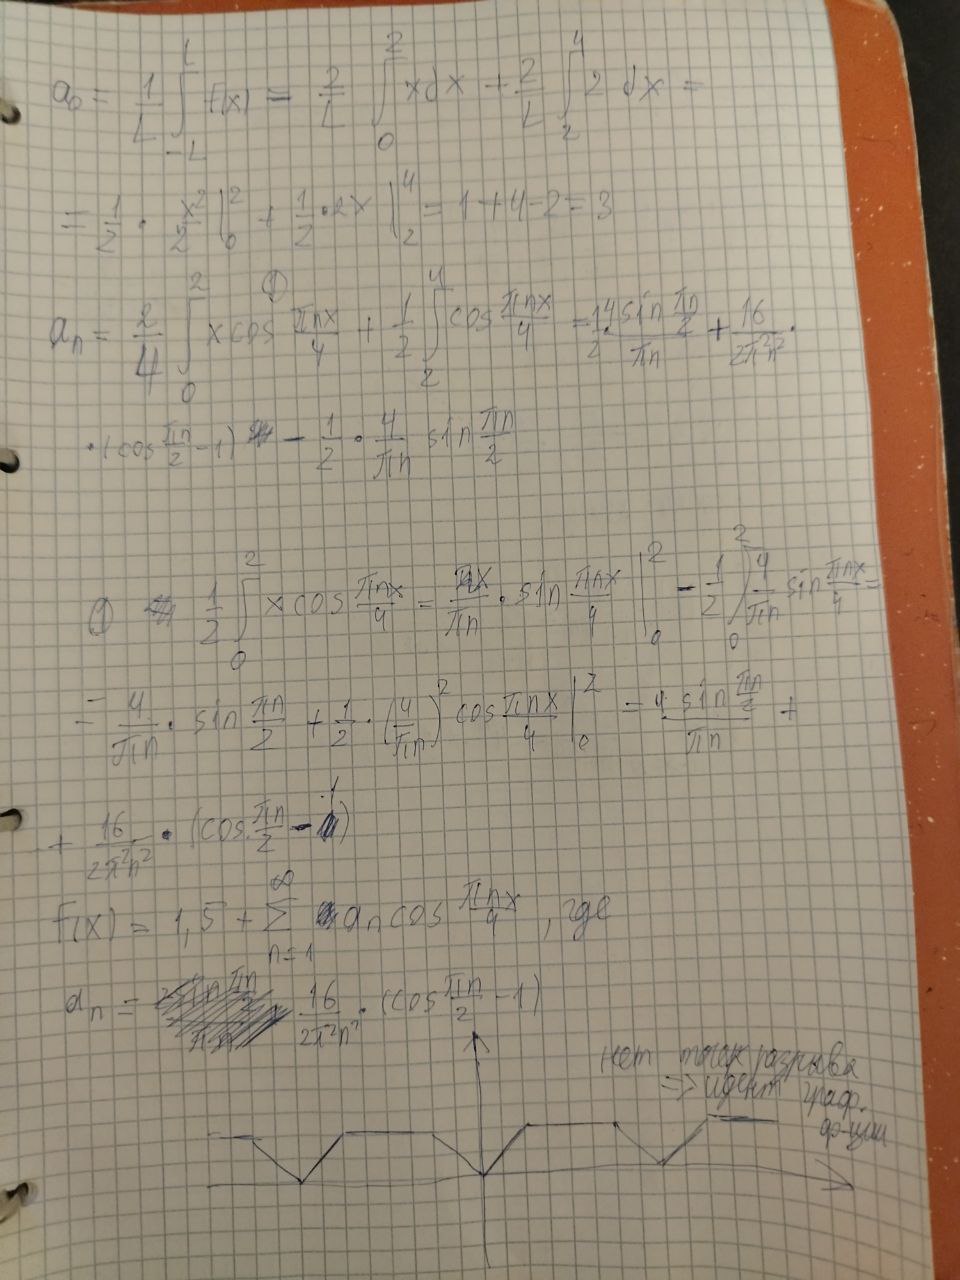 a₀ = 1/L ∫_{-L}^{L} f(x) = 2/L ∫_0^2 x dx + 2/L ∫_2^4 2 dx =
= 1/2 · x²/2 |_0^2 + 1/2 · 2x |_2^4 = 1 + 4 - 2 = 3
aₙ = 2/4 ∫_0^2 x cos πnx/4 + 1/2 ∫_2^4 cos πnx/4 = 1/2 · 4 sin πn/2 / πn + 16/2π²n² ·
· (cos πn/2 - 1) - 1/2 · 4/πn sin πn/2
① 1/2 ∫_0^2 x cos πnx/4 = x/πn · sin πnx/4 |_0^2 - 1/2 ∫_0^2 4/πn sin πnx/4 =
= 4/πn · sin πn/2 + 1/2 · (4/πn)² cos πnx/4 |_0^2 = 4 · sin πn/2 / πn +
+ 16/2π²n² · (cos πn/2 - 1)
f(x) = 1,5 + Σ_{n=1}^{∞} aₙ cos πnx/4 , где
aₙ = 16/2π²n² · (cos πn/2 - 1)
нет точек разрыва
=> идент граф.
ф-ции